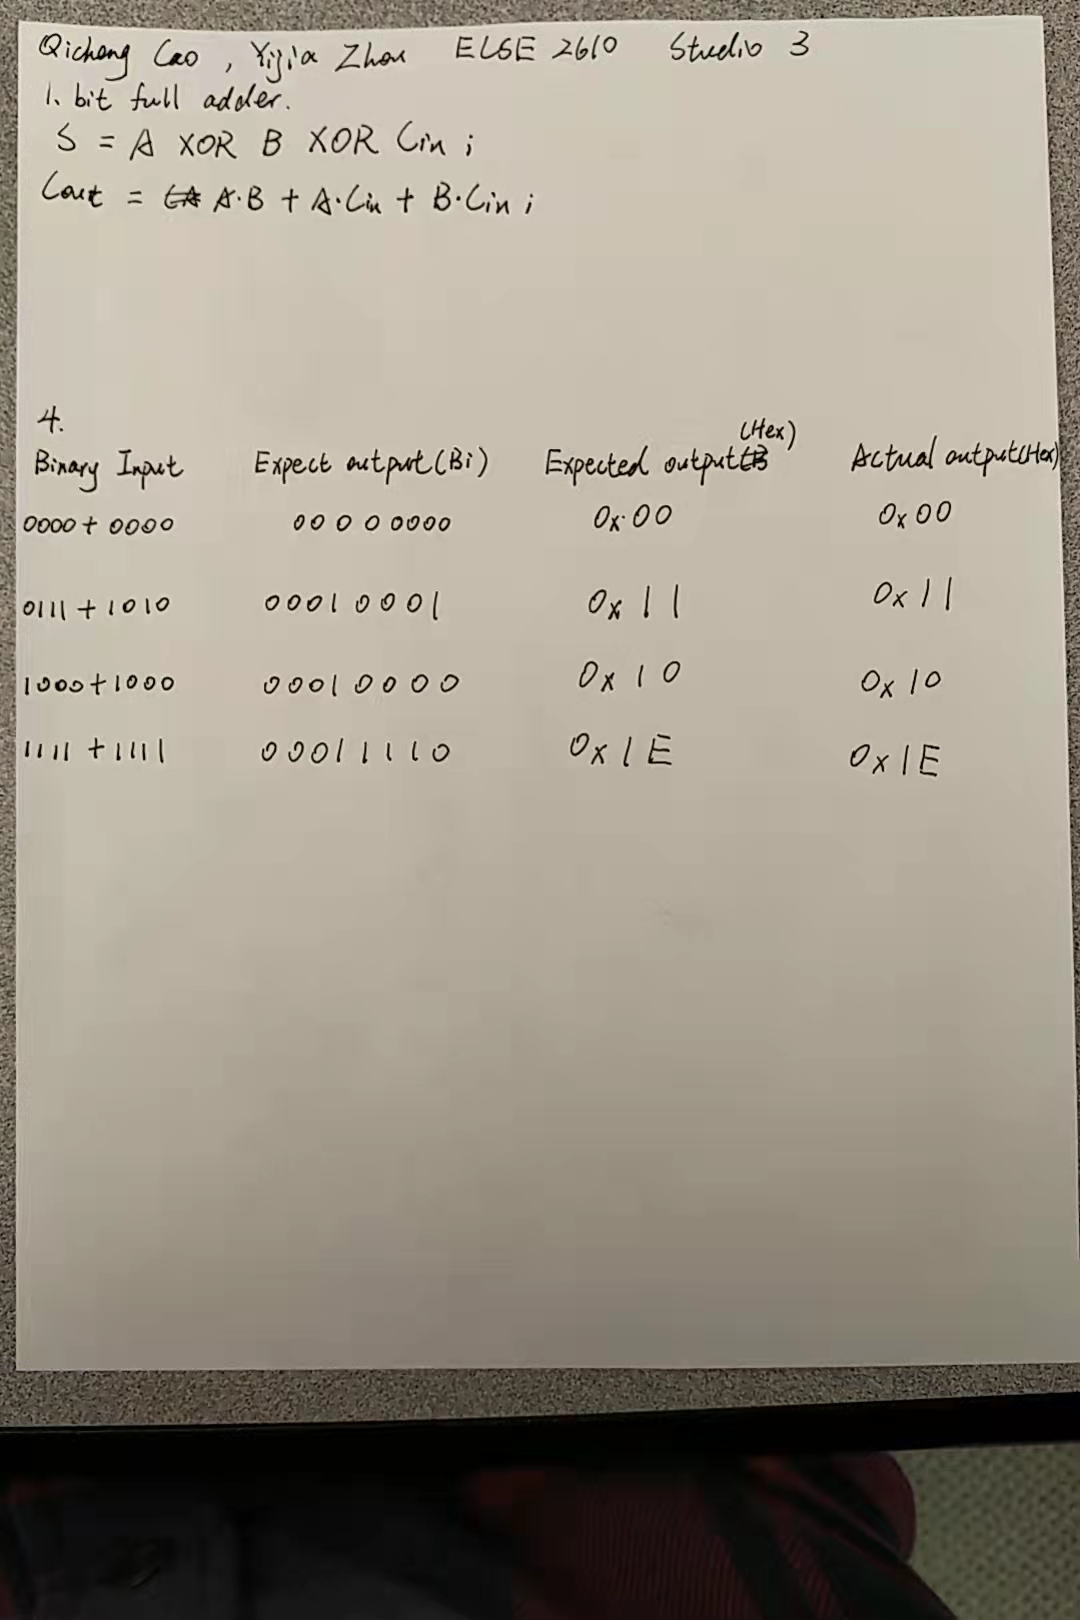 Qicheng Cao , Yijia Zhou ELSE 2610 Studio 3
1. bit full adder.
S = A XOR B XOR Cin ;
Cout = A·B + A·Cin + B·Cin ;
4.
Binary Input Expect output (Bi) Expected output (Hex) Actual output (Hex)
0000 + 0000 00000000 0x00 0x00
0111 + 1010 00010001 0x11 0x11
1000 + 1000 00010000 0x10 0x10
1111 + 1111 00011110 0x1E 0x1E